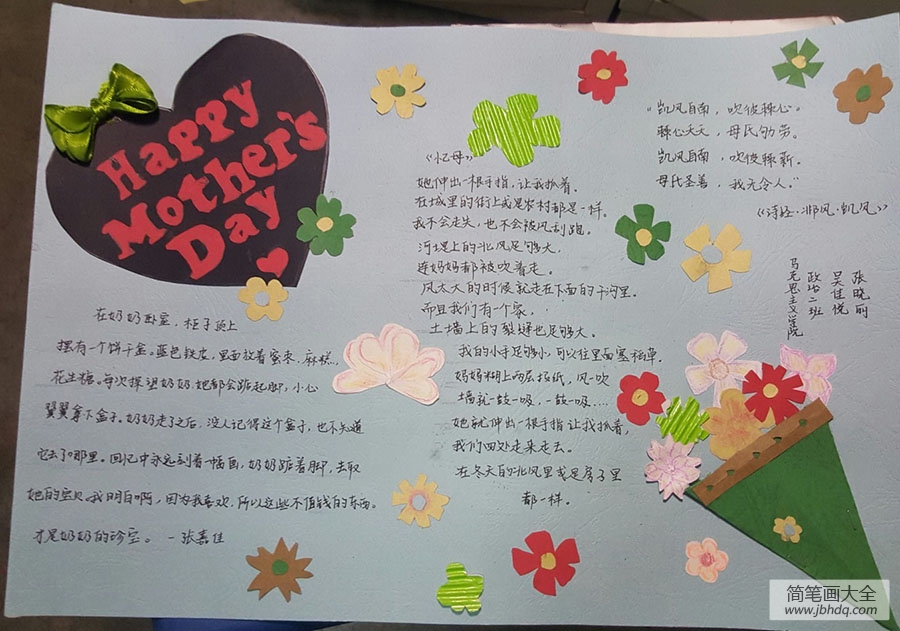 Happy
Mother's
Day
在奶奶卧室，柜子顶上
摆有一个饼干盒。蓝色铁皮，里面放着蜜枣、麻糕、
花生糖。每次探望奶奶，她都会踮起脚，小心
翼翼拿下盒子。奶奶走了之后，没人记得这个盒子，也不知道
它去了哪里。回忆中永远刻着一幅画，奶奶踮着脚，去取
她的宝贝。我明白啊，因为我喜欢，所以这些不值钱的东西。
才是奶奶的珍宝。 —张嘉佳
《忆母》
她伸出一根手指，让我抓着。
在城里的街上或是农村都是一样。
我不会走失，也不会被风刮跑。
河堤上的北风足够大，
连妈妈都被吹着走。
风太大的时候就走在下面的干沟里。
而且我们有个家，
土墙上的裂缝也足够大。
我的小手足够小，可以往里面塞稻草。
妈妈糊上两层报纸，风一吹
墙就一鼓一吸，一鼓一吸...
她就伸出一根手指让我抓着，
我们四处走来走去。
在冬天的北风里或是房子里
都一样。
“凯风自南，吹彼棘心。
棘心夭夭，母氏劬劳。
凯风自南，吹彼棘薪。
母氏圣善，我无令人。”
《诗经·邶风·凯风》
张晓丽
吴佳悦
政治二班
马克思主义学院
简笔画大全
www.jbhdq.com